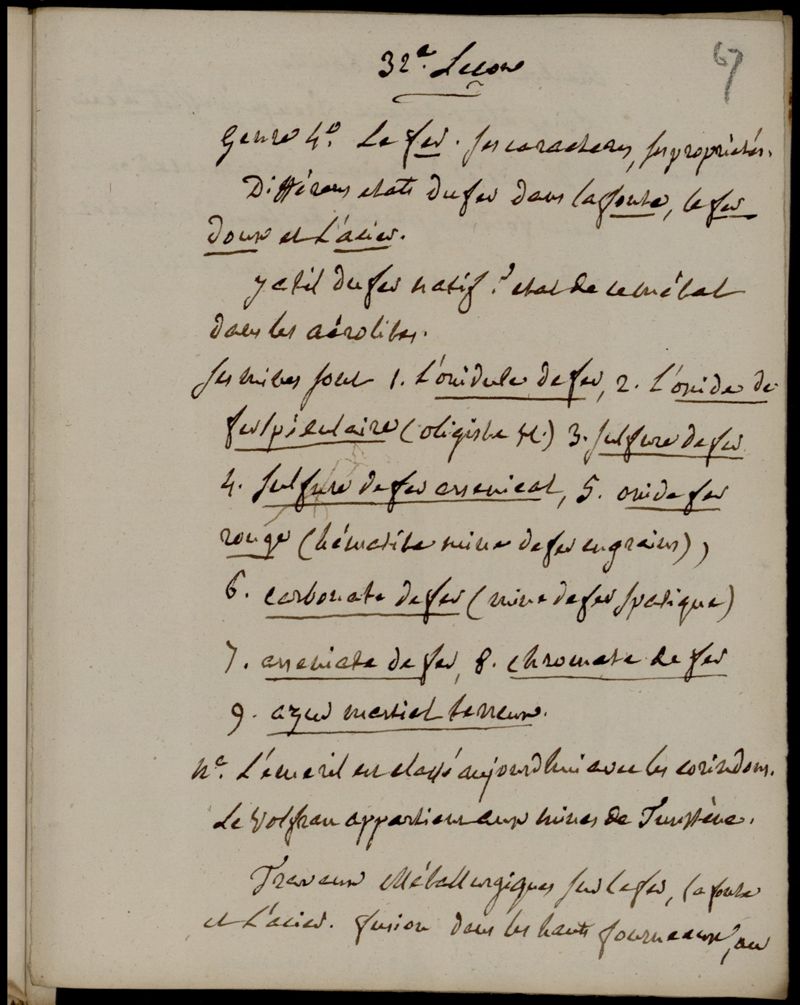 67
32e. Leçon
Genre 4o. Le fer. ses caracteres, ses proprietés.
Différens etats du fer dans la fonte, le fer
doux et L'acier.
y atil du fer natif? etat de ce métal
dans les aérolites.
Ses mines sont 1. L'oxidule de fer, 2. L'oxide de
fer spéculaire (oligiste H.) 3. sulfure de fer
4. sulfure de fer arsenical, 5. oxide fer
rouge (hématite mine de fer en grains),
6. carbonate de fer (mine de fer spatique)
7. arseniate de fer, 8. chromate de fer
9. azur martial terreux.
na. L'émeril est classé aujourdhui avec les corindons.
Le Volfran appartient aux mines de Tunstène.
Travaux Métallurgiques sur le fer, la fonte
et L'acier. fusion dans les hauts fourneaux, au